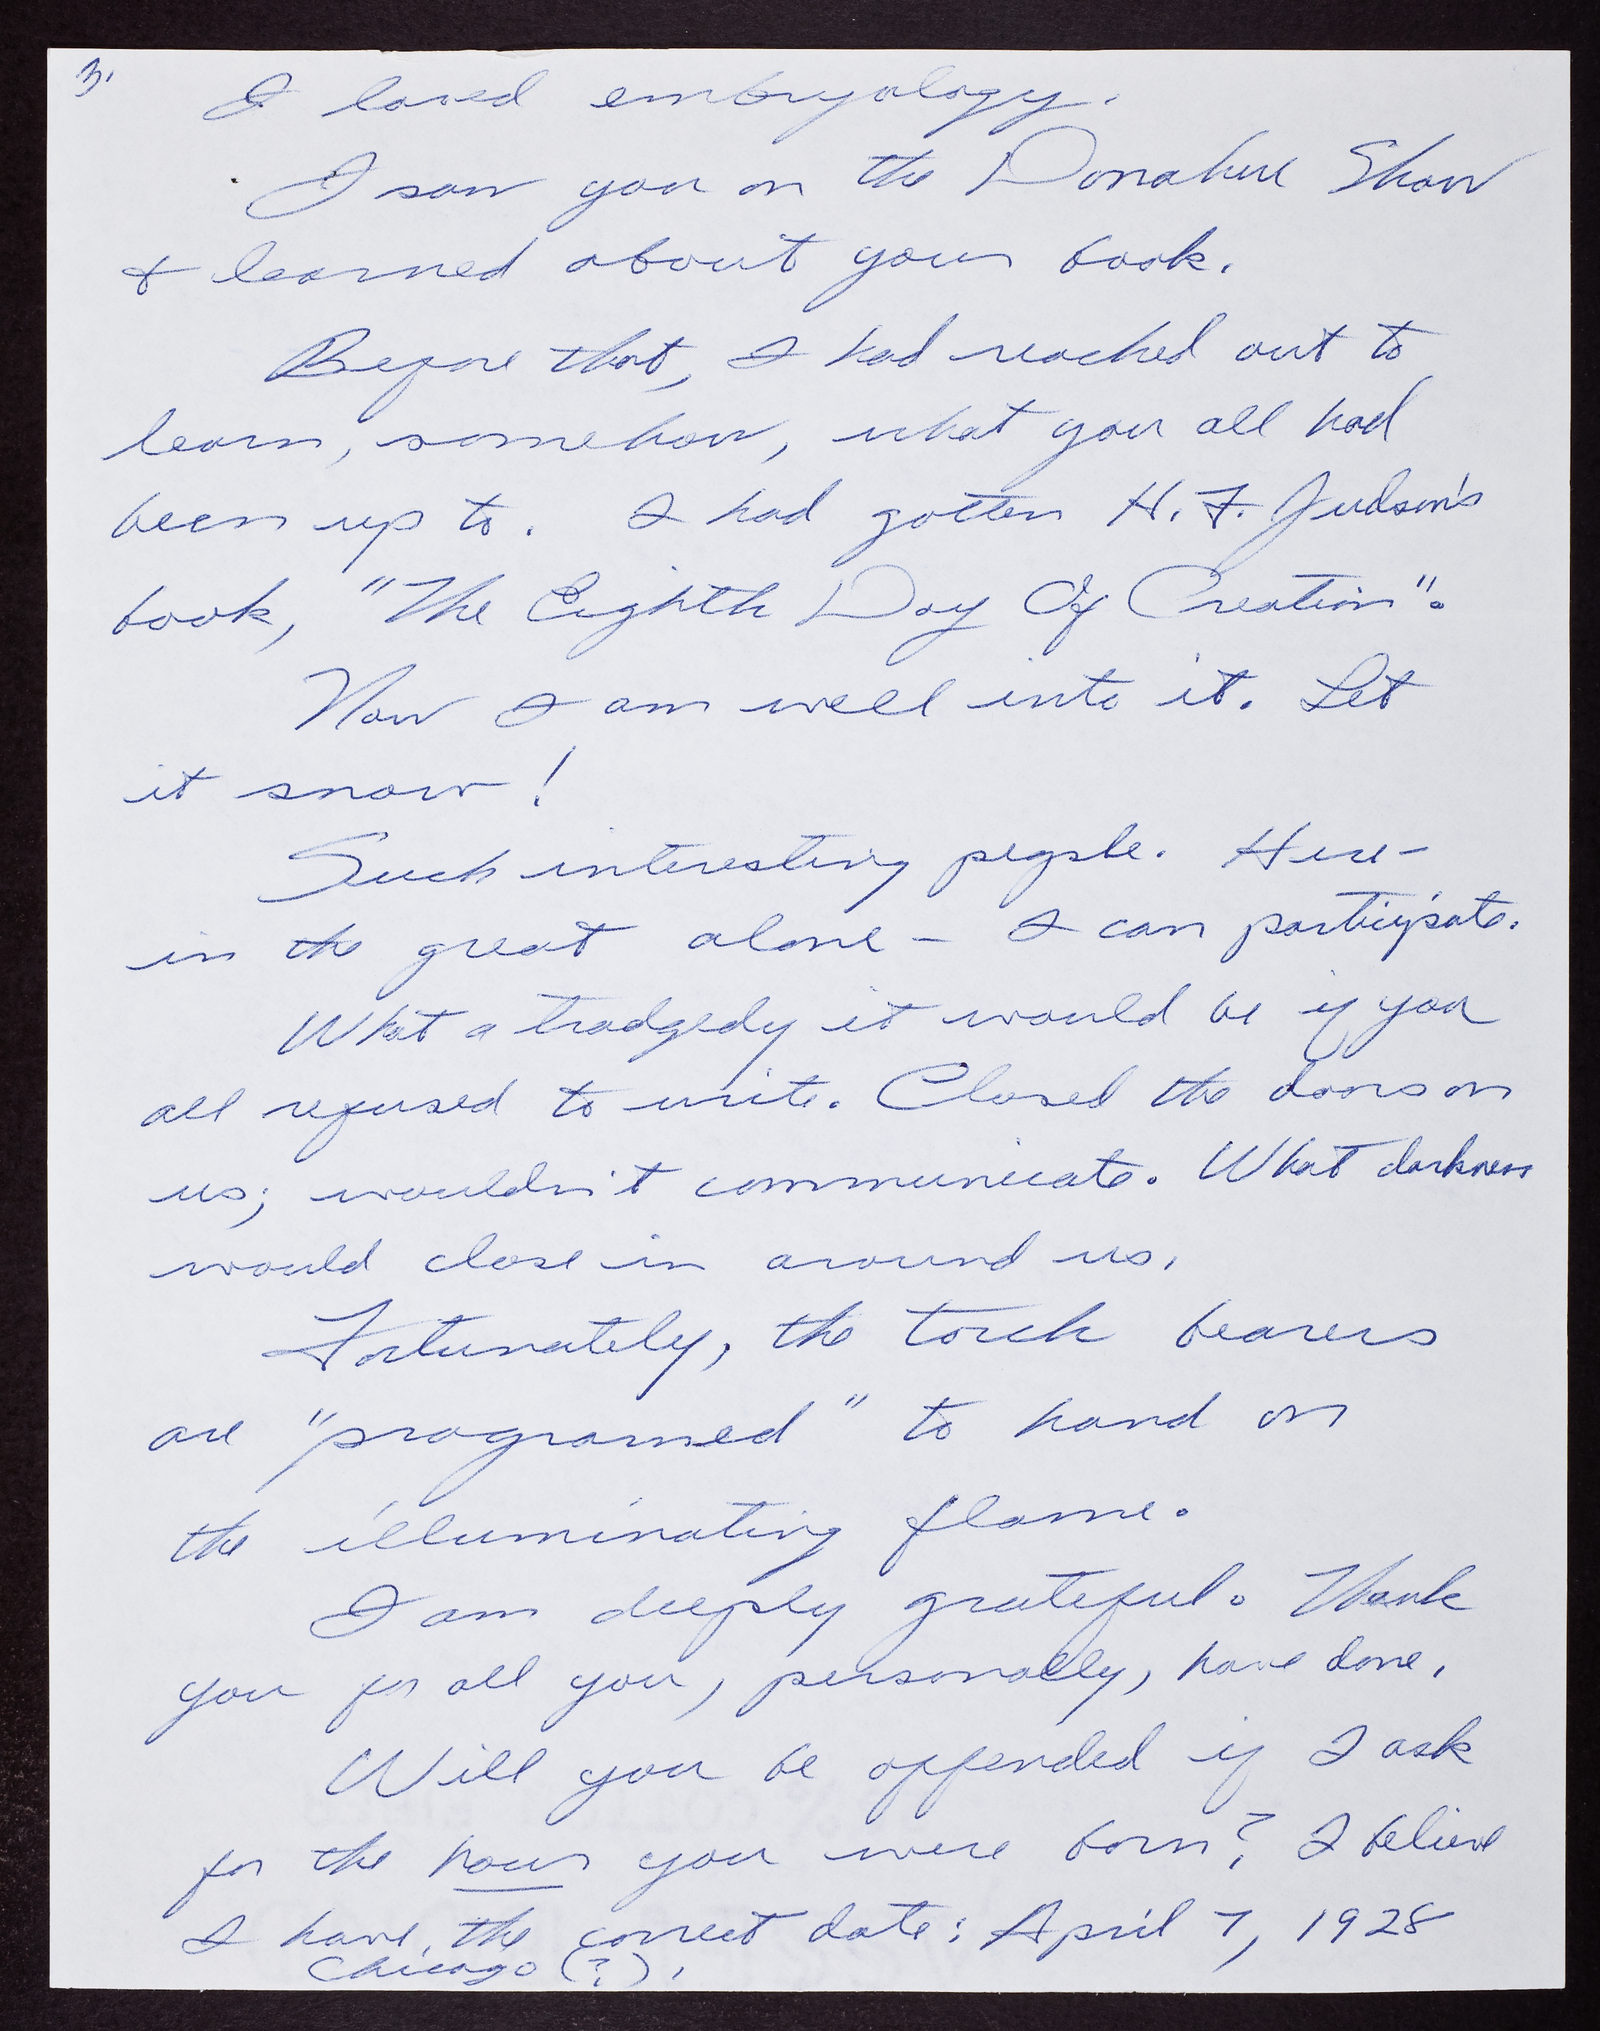 3.
I loved embryology.
I saw you on the Donahue Show
& learned about your book.
Before that, I had reached out to
learn, somehow, what you all had
been up to. I had gotten H. F. Judson's
book, "The Eighth Day Of Creation".
Now I am well into it. Let
it snow!
Such interesting people. Here -
in the great alone - I can participate.
What a tradgedy it would be if you
all refused to write. Closed the doors on
us; wouldn't communicate. What darkness
would close in around us.
Fortunately, the torch bearers
are "programed" to hand on
the illuminating flame.
I am deeply grateful. Thank
you for all you, personally, have done.
Will you be offended if I ask
for the hour you were born? I believe
I have the correct date: April 7, 1928
Chicago (?).